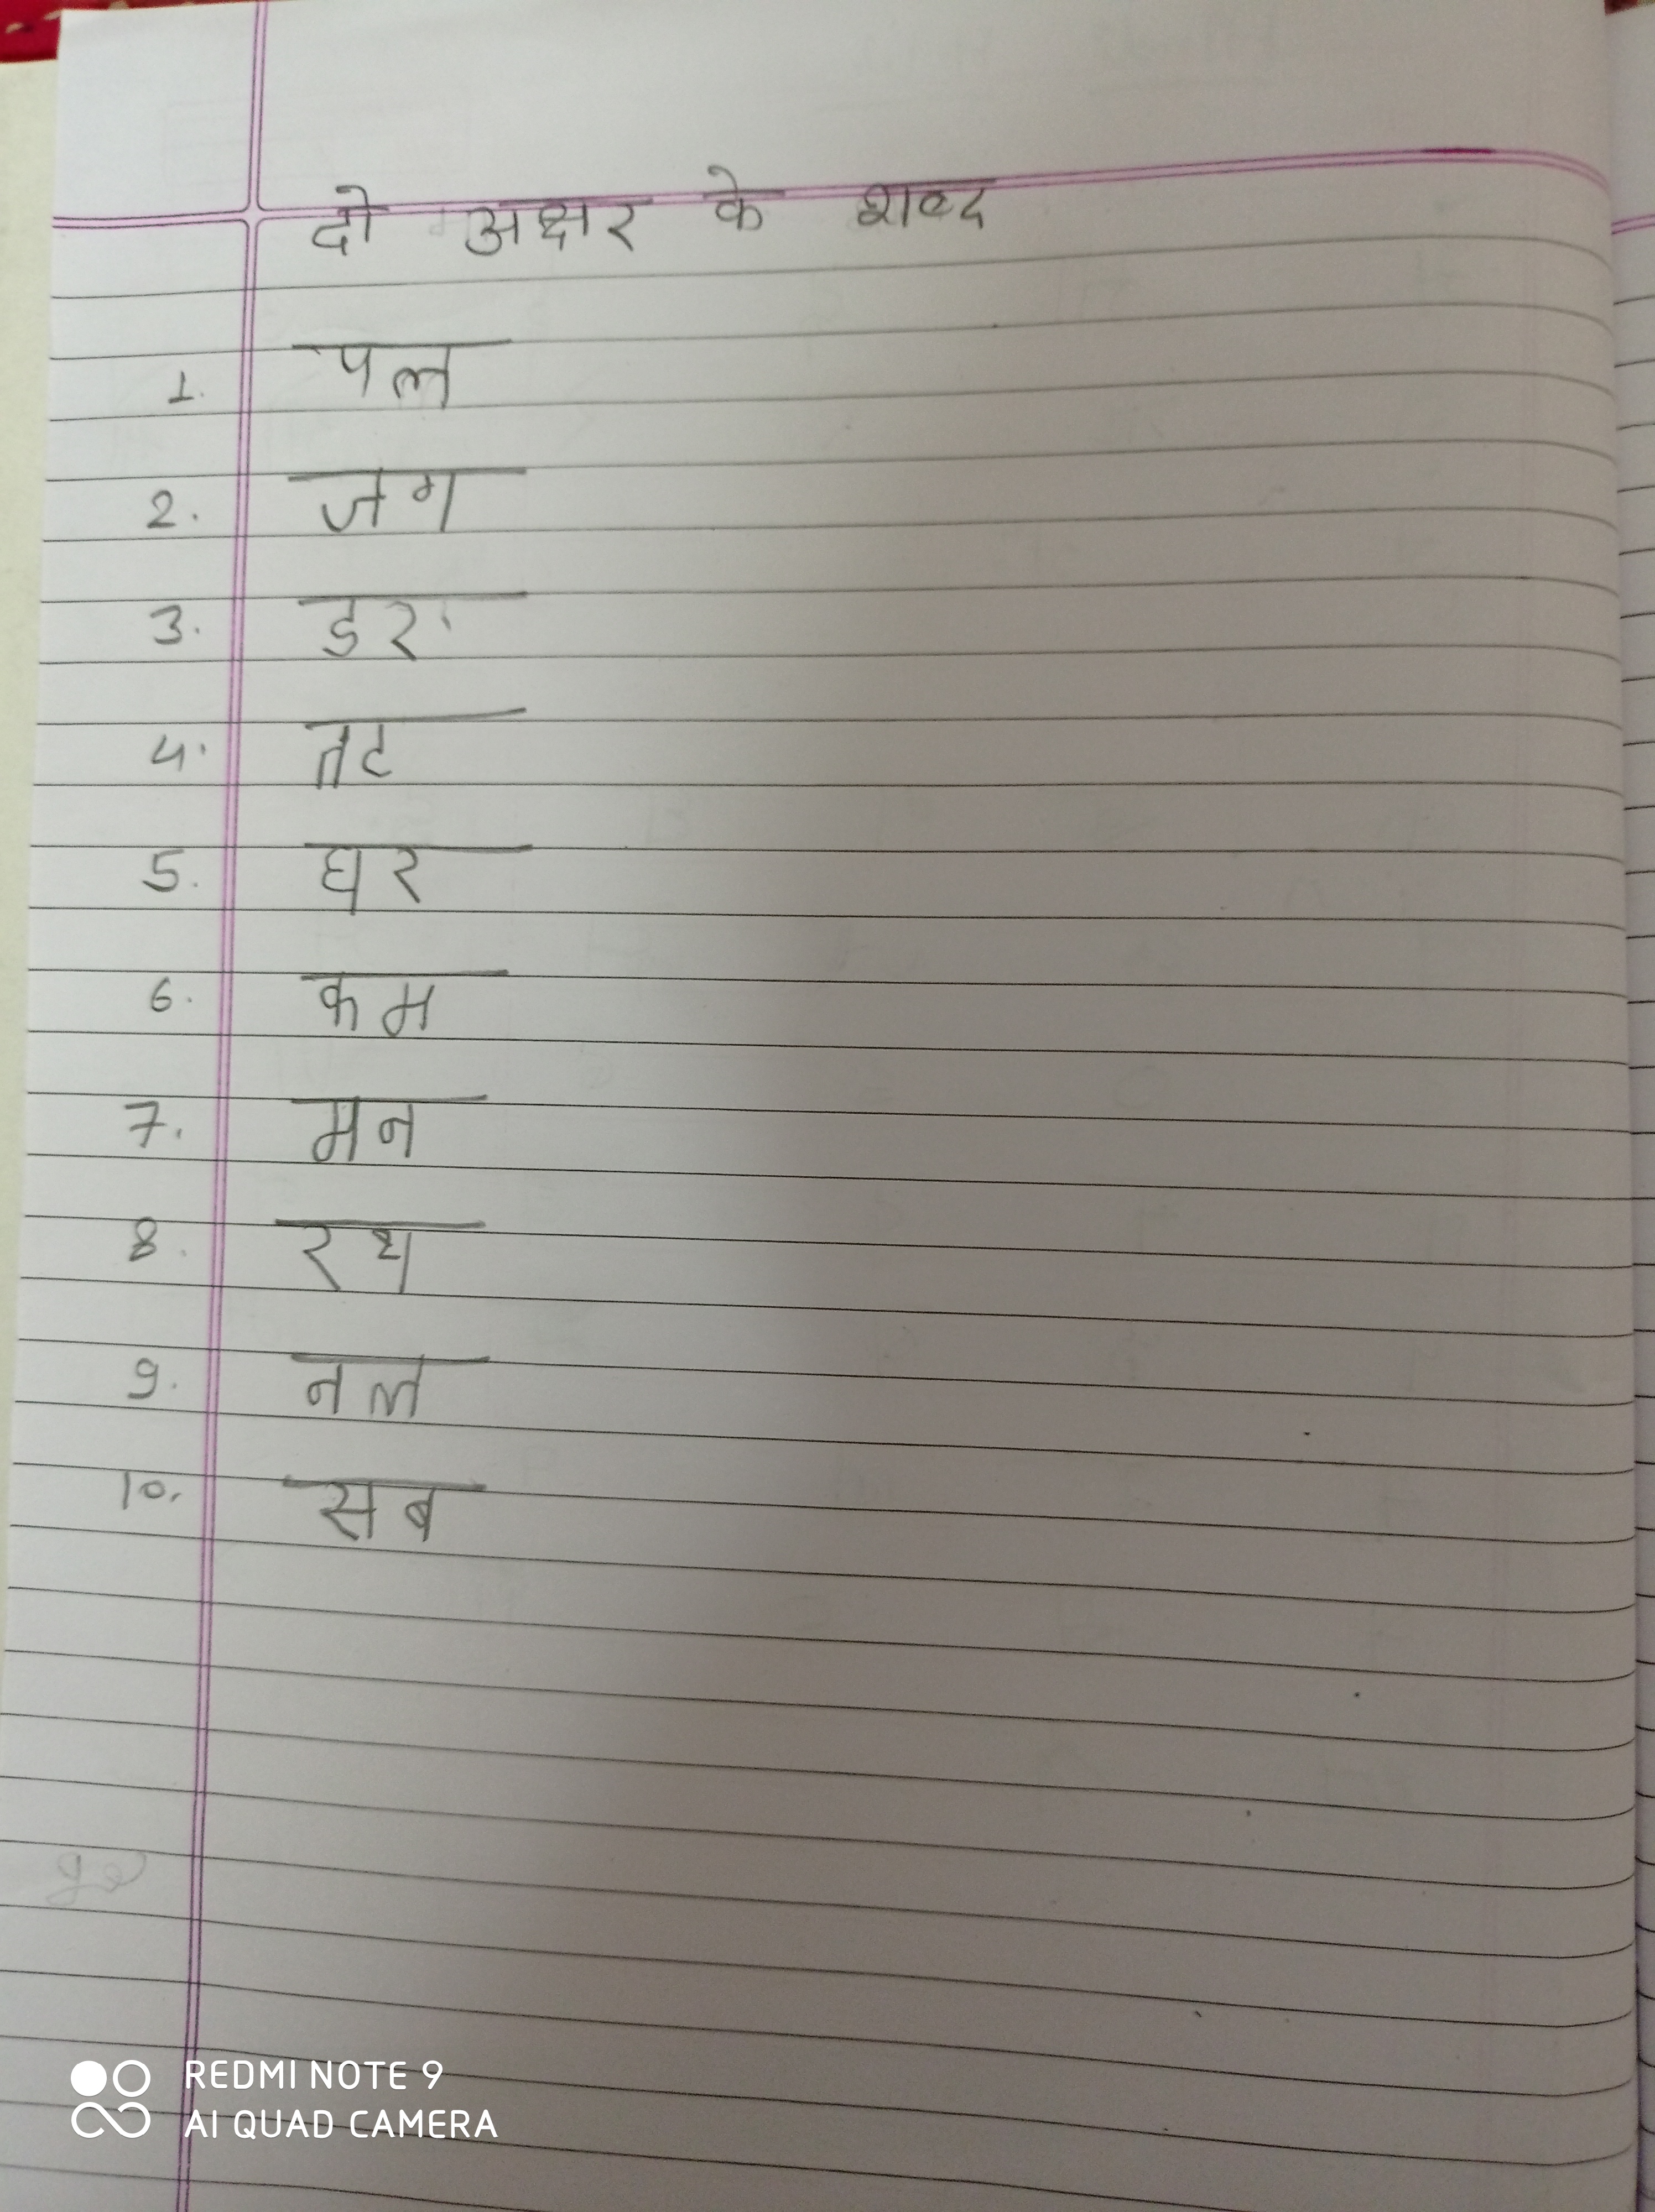 दो अक्षर के शब्द
1. पल
2. जग
3. डर
4. तट
5. घर
6. कम
7. मन
8. रथ
9. नल
10. सब
REDMI NOTE 9
AI QUAD CAMERA